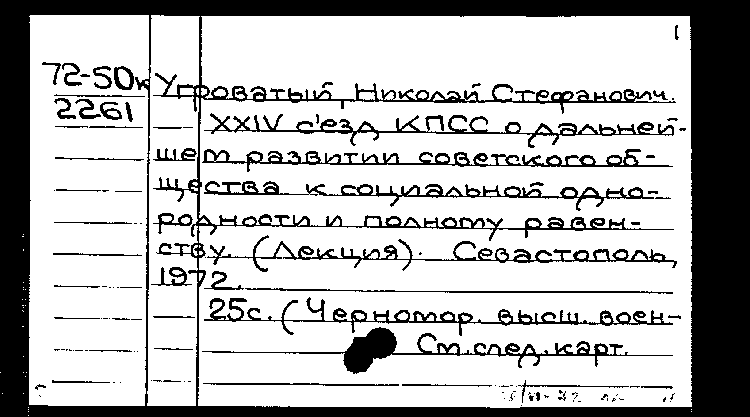 1
72-50к Угроватый, Николай Стефанович.
2261 XXIV с'езд КПСС о дальней-
шем развитии советского об-
щества к социальной одно-
родности и полному равен-
ству. (Лекция). Севастополь,
1972.
25с. (Черномор. высш. воен-
См. след. карт.